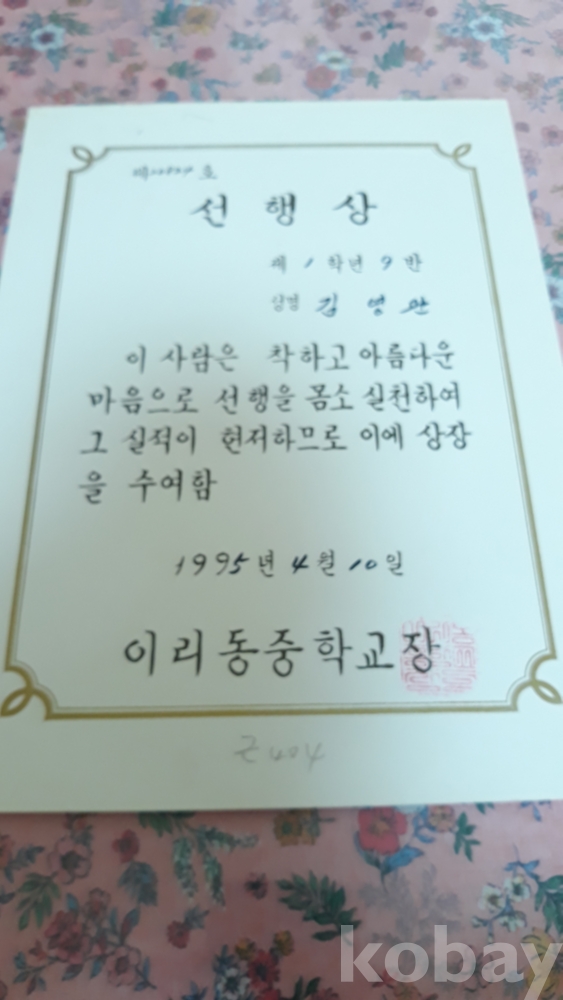 선행상
제 1 학년 9 반
성명 김영관
이 사람은 착하고 아름다운
마음으로 선행을 몸소 실천하여
그 실적이 현저하므로 이에 상장
을 수여함
1995년 4월 10일
이리동중학교장
kobay